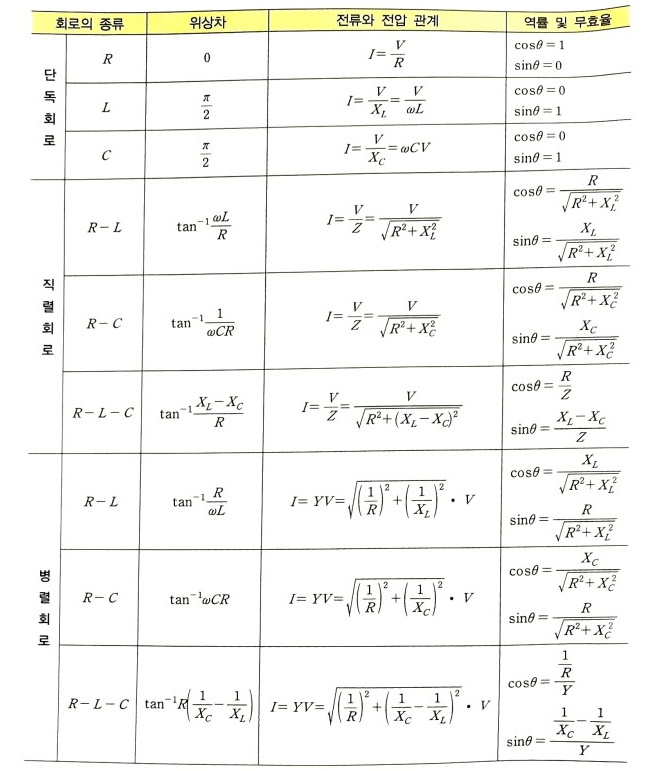 회로의 종류 위상차 전류와 전압 관계 역률 및 무효율
단독회로
R 0 I=V/R cosθ=1
sinθ=0
L π/2 I=V/X_L=V/ωL cosθ=0
sinθ=1
C π/2 I=V/X_C=ωCV cosθ=0
sinθ=1
직렬회로
R-L tan⁻¹ωL/R I=V/Z=V/√(R²+X_L²) cosθ=R/√(R²+X_L²)
sinθ=X_L/√(R²+X_L²)
R-C tan⁻¹1/ωCR I=V/Z=V/√(R²+X_C²) cosθ=R/√(R²+X_C²)
sinθ=X_C/√(R²+X_C²)
R-L-C tan⁻¹(X_L-X_C)/R I=V/Z=V/√(R²+(X_L-X_C)²) cosθ=R/Z
sinθ=(X_L-X_C)/Z
병렬회로
R-L tan⁻¹R/ωL I=YV=√((1/R)²+(1/X_L)²)·V cosθ=X_L/√(R²+X_L²)
sinθ=R/√(R²+X_L²)
R-C tan⁻¹ωCR I=YV=√((1/R)²+(1/X_C)²)·V cosθ=X_C/√(R²+X_C²)
sinθ=R/√(R²+X_C²)
R-L-C tan⁻¹R(1/X_C-1/X_L) I=YV=√((1/R)²+(1/X_C-1/X_L)²)·V cosθ=(1/R)/Y
sinθ=(1/X_C-1/X_L)/Y